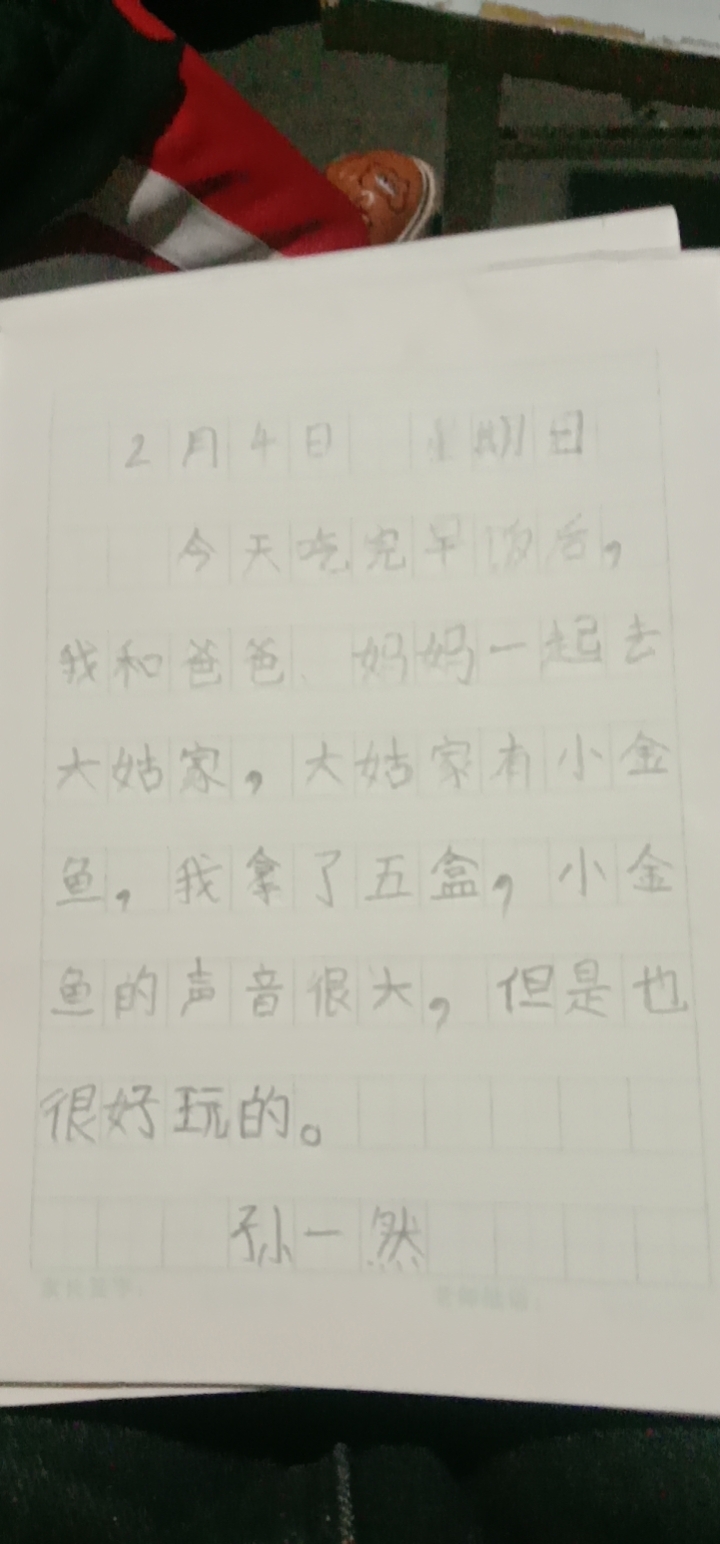 2月4日 星期日
今天吃完早饭后，
我和爸爸、妈妈一起去
大姑家，大姑家有小金
鱼，我拿了五盒，小金
鱼的声音很大，但是也
很好玩的。
孙一然
家长签字：